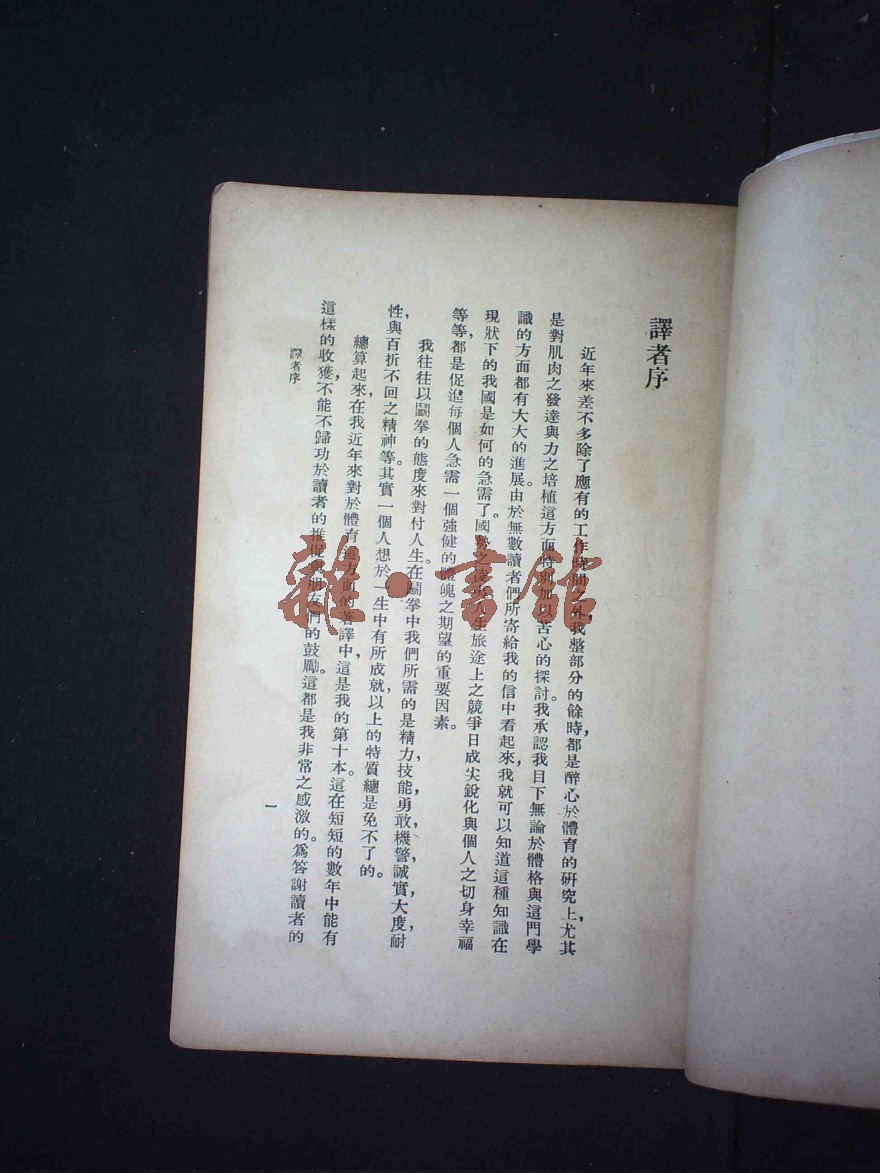 譯者序
近年來差不多除了應有的工作時間之外，我整部分的餘時，都是醉心於體育的硏究上，尤其
是對肌肉之發達與力之培植這方面特別加以苦心的探討。我承認我目下無論於體格與這門學
識的方面都有大大的進展。由於無數讀者們所寄給我的信中看起來，我就可以知道這種知識在
現狀下的我國是如何的急需了。國勢之凌夷，人生旅途上之競爭日成尖銳化與個人之切身幸福
等等，都是促進每個人急需一個強健的體魄之期望的重要因素。
我往往以鬭拳的態度來對付人生。在鬭拳中我們所需的是精力，技能，勇敢，機警，誠實，大度，耐
性，與百折不回之精神等。其實一個人想於一生中有所成就，以上的特質總是免不了的。
總算起來，在我近年來對於體育這方面的著譯中，這是我的第十本。這在短短的數年中能有
這樣的收獲，不能不歸功於讀者的推促與朋友們的鼓勵。這都是我非常之感激的。爲答謝讀者的
譯者序
一
雜·書館